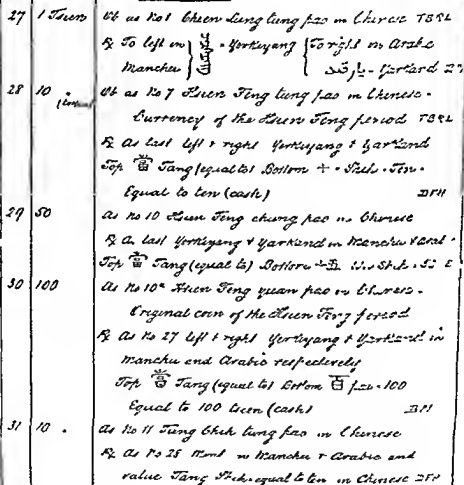 27 1 Tseen Ob as No 1 Chien Lung tung pao in Chinese TBRL
R To left in Manchu - Yerkiyang To right in Arabic يارقند - Yarkand
28 10 Ob as No 7 Hsien Feng tung pao in Chinese -
Currency of the Hsien Feng period TBRL
R As last left & right Yerkiyang & Yarkand
Top 當 Tang (equal to) Bottom 十 - Shih - Ten -
Equal to ten (cash)
29 50 As No 10 Hsien Feng chung pao in Chinese
R As last Yerkiyang & Yarkand in Manchu & Arabic -
Top 當 Tang (equal to) Bottom
30 100 As No 10a Hsien Feng yuan pao in Chinese -
Original coin of the Hsien Feng period
R As No 27 left & right Yerkiyang & Yarkand in
Manchu and Arabic respectively
Top 當 Tang (equal to) Bottom 百 pai - 100
Equal to 100 tseen (cash)
31 10 . As No 11 Tung Chih tung pao in Chinese
R As No 28 Mint in Manchu & Arabic and
value Tang Shih equal to ten in Chinese